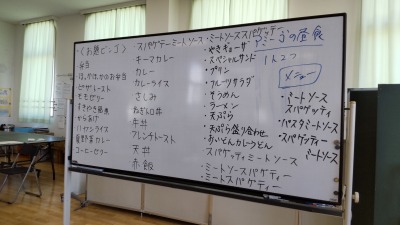 〈お題ビンゴ〉
弁当
ほかほかのお弁当
ピザトースト
モモゼリー
からあげ
ハヤシライス
コーヒーゼリー
・スパゲッテーミートソース
キーマカレー
カレー
カレーライス
さしみ
ねぎトロ丼
牛丼
フレンチトースト
天丼
赤飯
・ミートソーススパゲッテー
・やきギョーザ
・スペシャルサンド
・プリン
・フルーツサラダ
・そうめん
・ラーメン
・天ぷら
・天ぷら盛り合わせ
・おいどんカレーうどん
スパゲッティミートソース
・ミートソースパゲティー
・ミートスパゲティー
の昼食
1人2つ
メニュー
・ミートソース
スパゲッティ
・パスタミートソース
・スパゲッティー
ミートソース